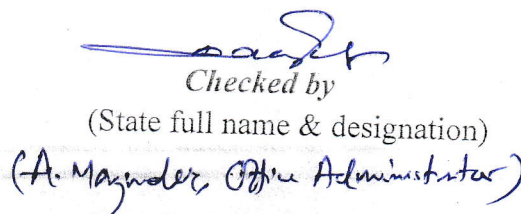 Checked by
(State full name & designation)
(A. Mazumder, Office Administrator)